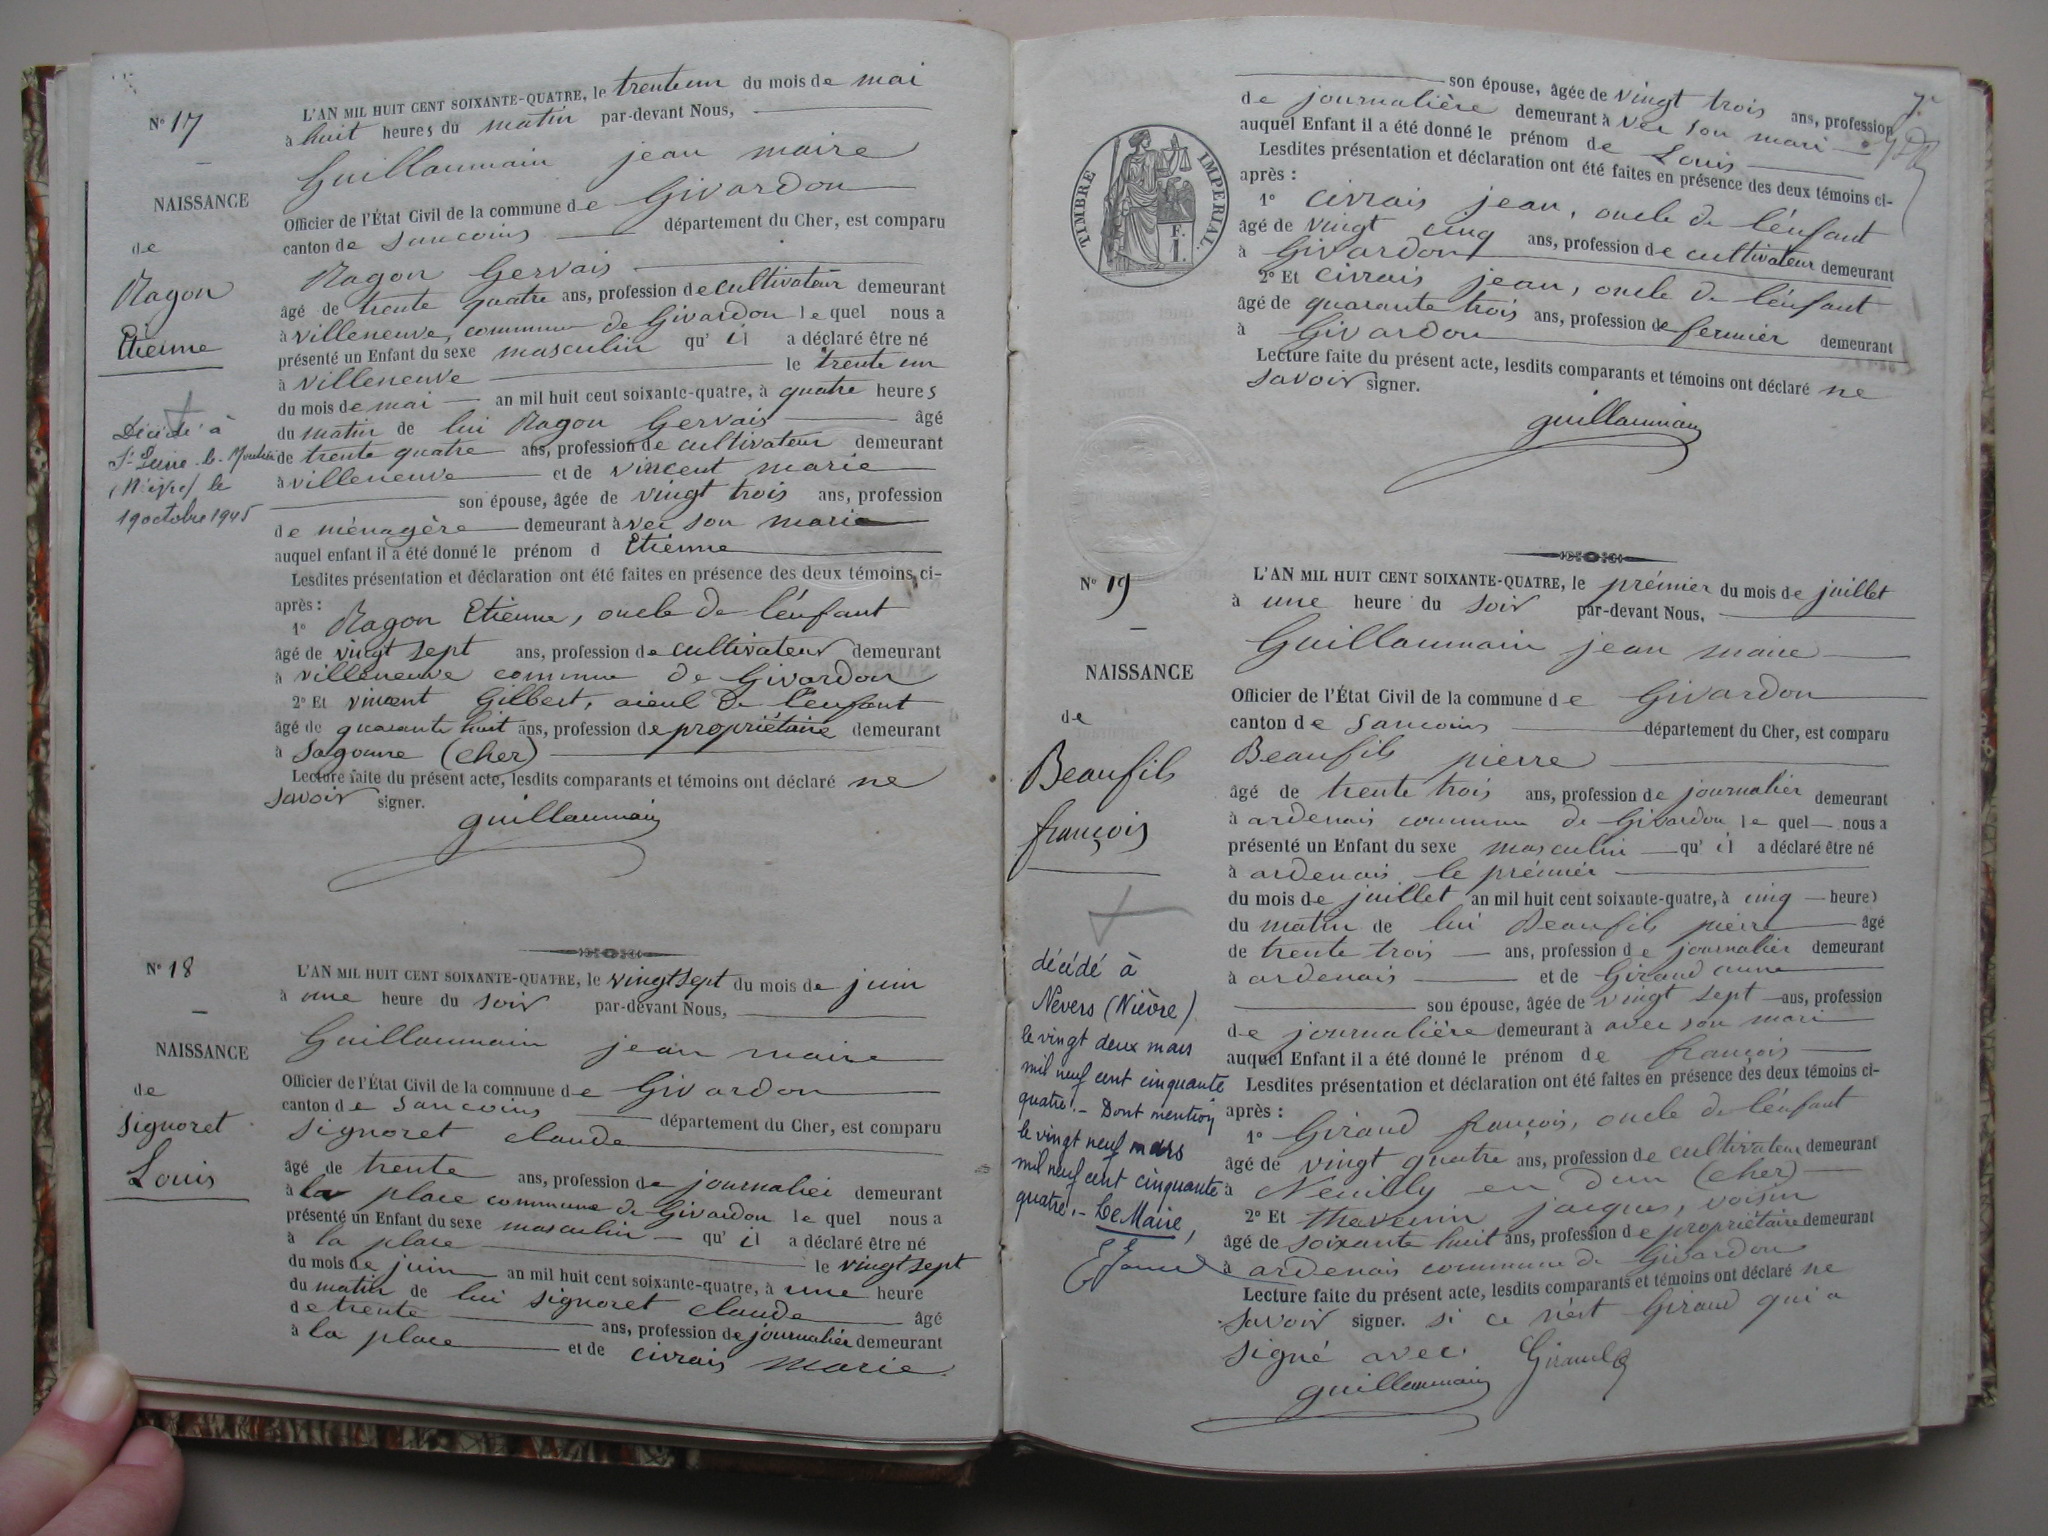 N° 17
NAISSANCE
de
Ragon
Etienne
Décédé à
(Nièvre) le
19 octobre 1945
L'AN MIL HUIT CENT SOIXANTE-QUATRE, le trente un du mois de mai
à huit heures du matin par-devant Nous,
Guillaumain jean maire
Officier de l'État Civil de la commune de Givardon
canton de Sancoins département du Cher, est comparu
Ragon Gervais
âgé de trente quatre ans, profession de cultivateur demeurant
à villeneuve, commune de Givardon lequel nous a
présenté un Enfant du sexe masculin qu'il a déclaré être né
à villeneuve le trente un
du mois de mai an mil huit cent soixante-quatre, à quatre heures
du matin de lui Ragon Gervais âgé
de trente quatre ans, profession de cultivateur demeurant
à villeneuve et de vincent marie
son épouse, âgée de vingt trois ans, profession
de ménagère demeurant à vec son marie
auquel enfant il a été donné le prénom d Etienne
Lesdites présentation et déclaration ont été faites en présence des deux témoins ci-
après :
1° Ragon Etienne, oncle de l'énfant
âgé de vingt sept ans, profession de cultivateur demeurant
à villeneuve commune de Givardon
2° Et vincent Gilbert, aieul de l'enfant
âgé de quarante huit ans, profession de propriétaire demeurant
à Sagonne (Cher)
Lecture faite du présent acte, lesdits comparants et témoins ont déclaré ne
savoir signer.
guillaumain
N° 18
NAISSANCE
de
Signoret
Louis
L'AN MIL HUIT CENT SOIXANTE-QUATRE, le vingt sept du mois de juin
à une heure du soir par-devant Nous,
Guillaumain jean maire
Officier de l'État Civil de la commune de Givardon
canton de Sancoins département du Cher, est comparu
Signoret claude
âgé de trente ans, profession de journalier demeurant
à la place commune de Givardon lequel nous a
présenté un Enfant du sexe masculin qu'il a déclaré être né
à la place le vingt sept
du mois de juin an mil huit cent soixante-quatre, à une heure
du matin de lui Signoret claude âgé
de trente ans, profession de journalier demeurant
à la place et de civrais marie
son épouse, âgée de vingt trois ans, profession
de journalière demeurant à vec son mari
auquel Enfant il a été donné le prénom de Louis
Lesdites présentation et déclaration ont été faites en présence des deux témoins ci-
après :
1° civrais jean, oncle de l'énfant
âgé de vingt cinq ans, profession de cultivateur demeurant
à Givardon
2° Et civrais jean, oncle de l'énfant
âgé de quarante trois ans, profession de fermier demeurant
à Givardon
Lecture faite du présent acte, lesdits comparants et témoins ont déclaré ne
savoir signer.
guillaumain
TIMBRE IMPERIAL.
F.
1.
N° 19
NAISSANCE
de
Beaufils
françois
décédé à
Nevers (Nièvre)
le vingt deux mars
mil neuf cent cinquante
quatre. - Dont mention
le vingt neuf mars
mil neuf cent cinquante
quatre. - Le Maire,
L'AN MIL HUIT CENT SOIXANTE-QUATRE, le prémier du mois de juillet
à une heure du soir par-devant Nous,
Guillaumain jean maire
Officier de l'État Civil de la commune de Givardon
canton de Sancoins département du Cher, est comparu
Beaufils pierre
âgé de trente trois ans, profession de journalier demeurant
à ardenais commune de Givardon lequel nous a
présenté un Enfant du sexe masculin qu'il a déclaré être né
à ardenais le prémier
du mois de juillet an mil huit cent soixante-quatre, à cinq heures
du matin de lui Beaufils pierre âgé
de trente trois ans, profession de journalier demeurant
à ardenais et de Giraud anne
son épouse, âgée de vingt sept ans, profession
de journalière demeurant à avec son mari
auquel Enfant il a été donné le prénom de françois
Lesdites présentation et déclaration ont été faites en présence des deux témoins ci-
après :
1° Giraud françois, oncle de l'énfant
âgé de vingt quatre ans, profession de cultivateur demeurant
à Neuilly en dun (cher)
2° Et thevenin jacques, voisin
âgé de soixante huit ans, profession de propriétaire demeurant
à ardenais commune de Givardon
Lecture faite du présent acte, lesdits comparants et témoins ont déclaré ne
savoir signer. si ce n'est Giraud qui a
signé avec Giraud
guillaumain